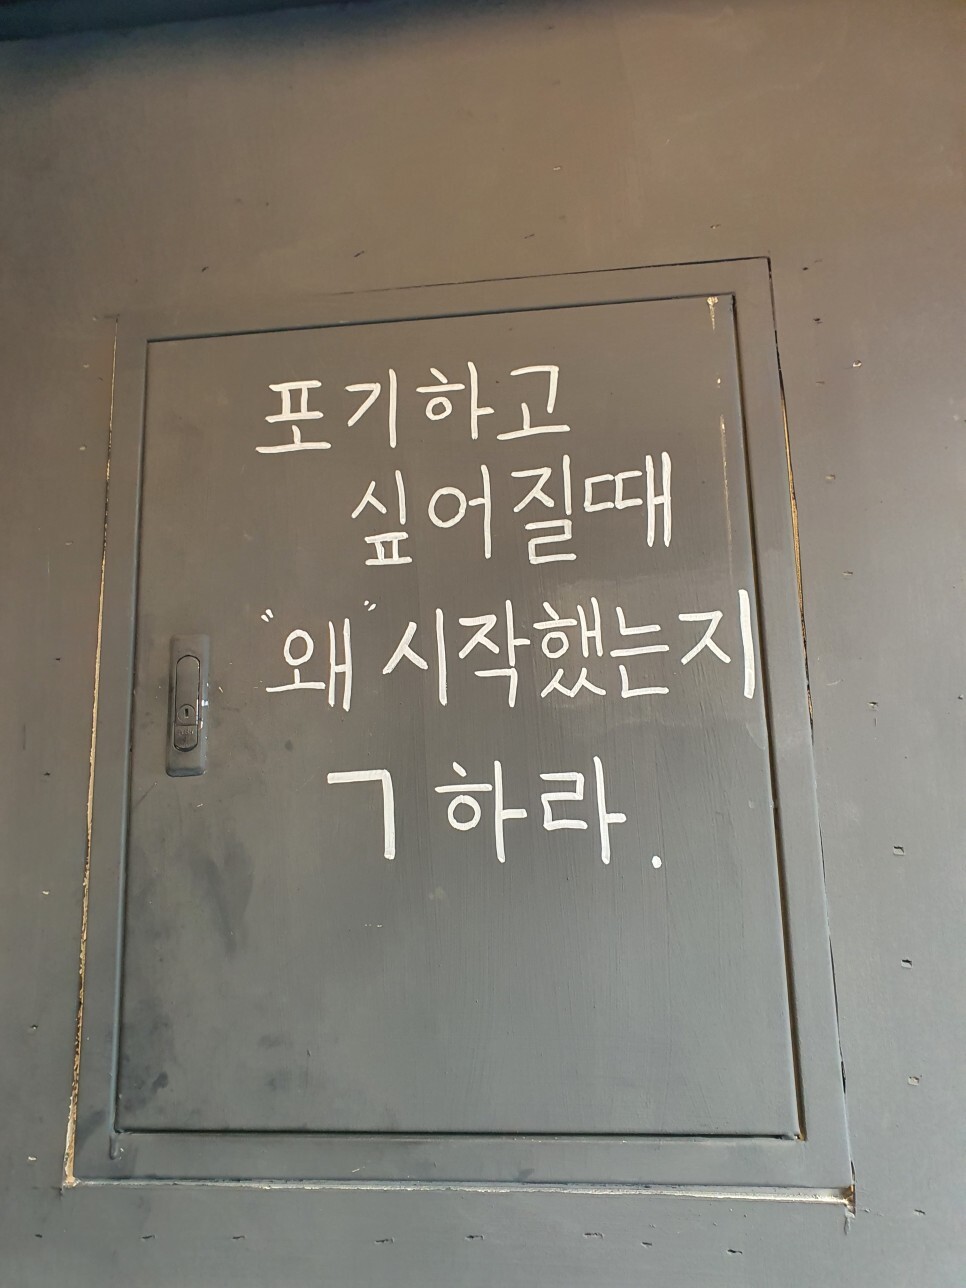 포기하고
싶어질때
"왜" 시작했는지
ㄱ하라.